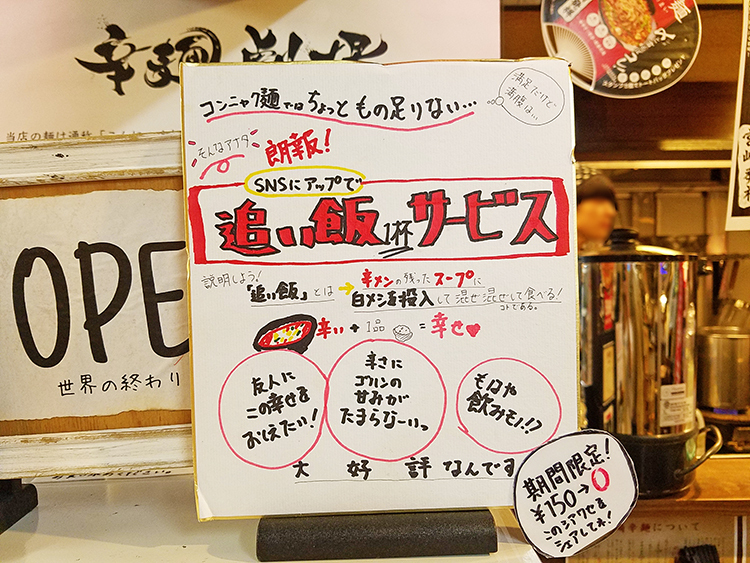 辛麺劇場
当店の麺は通称「こん
コンニャク麺ではちょっともの足りない…
満足だけど
満腹は…
そんなアナタ
朗報!
SNSにアップで
追い飯1杯サービス
説明しよう!
「追い飯」とは→辛メンの残ったスープに
白メシ直投入して混ぜ混ぜして食べる!
コトである。
辛い+1品=幸せ♥
友人に
この幸せを
おしえたい!
辛さに
ゴハンの
甘みが
たまらなーいっ
もはや
飲みモノ!?
大好評なんです
期間限定!
¥150→0
このシアワセを
シェアしてネ!
OPE
世界の終わり